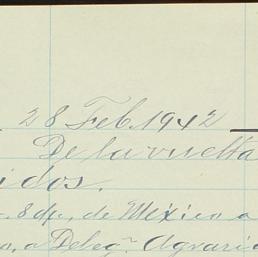 28 Feb. 1942
De la vuelta
idos.
8 dp, de México a
o, a Deleg.n Agrari